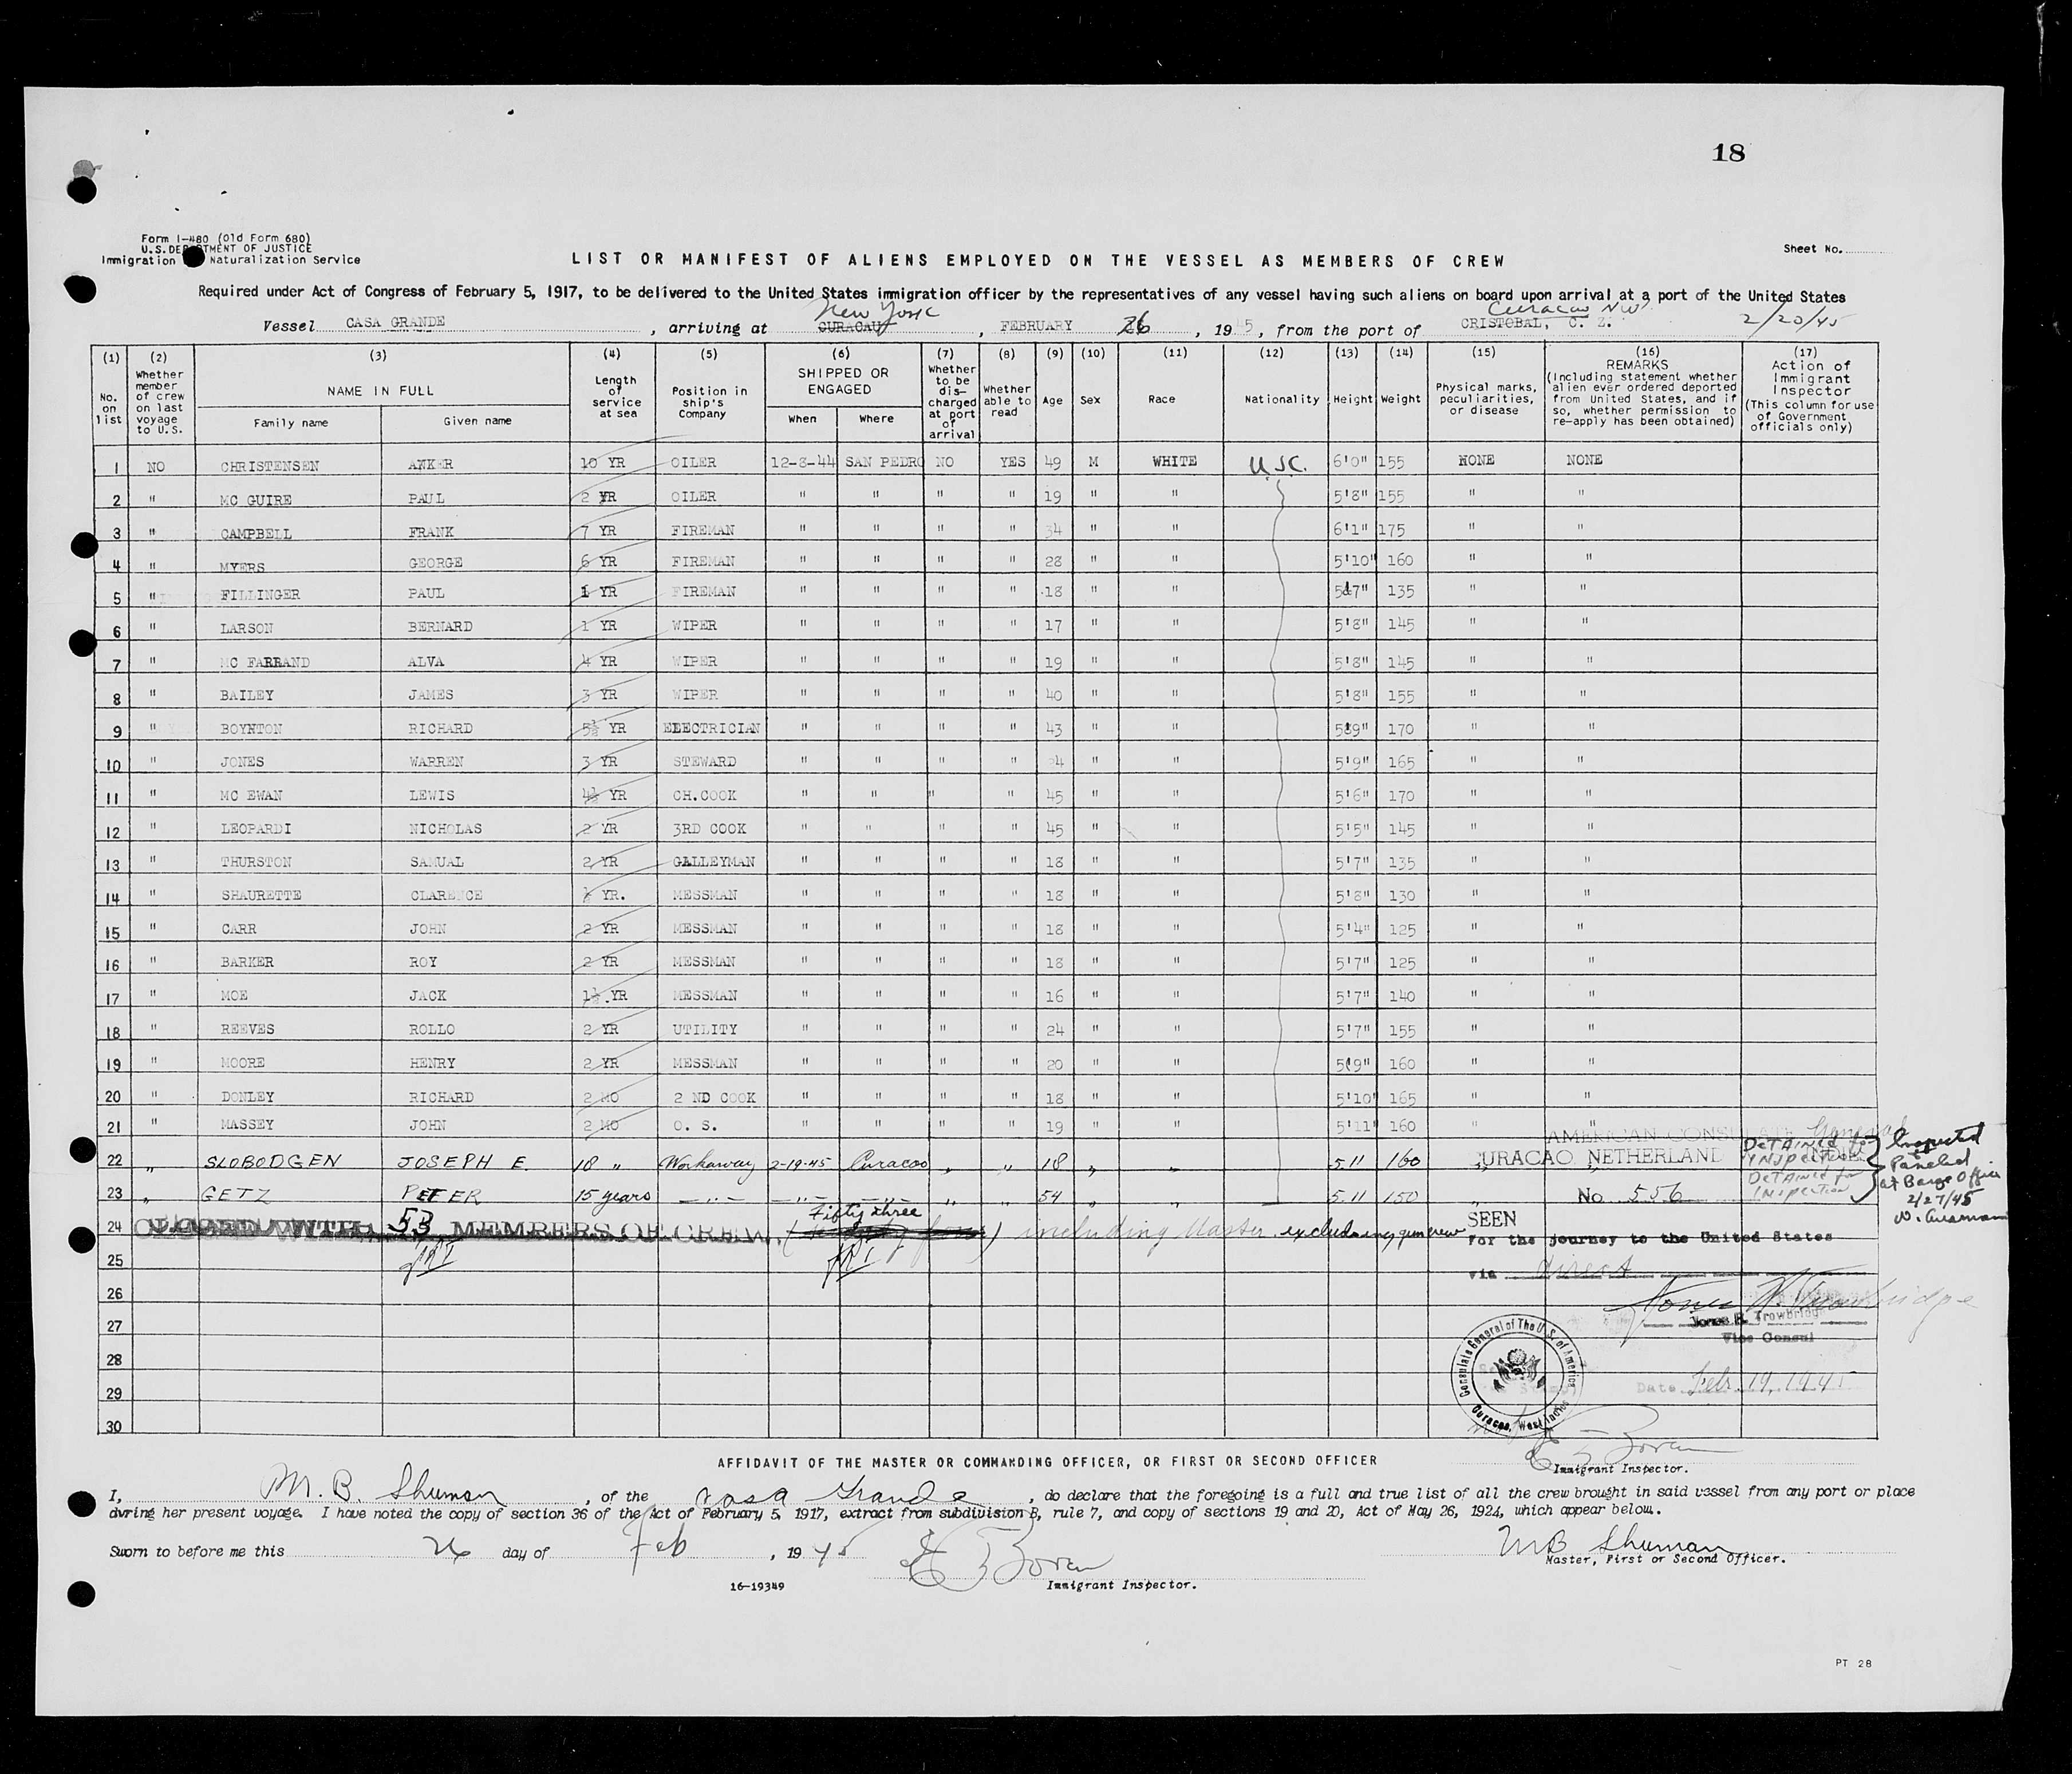 18
Form I-480 (Old Form 680)
U.S. DEPARTMENT OF JUSTICE
Immigration Naturalization Service
Sheet No.
LIST OR MANIFEST OF ALIENS EMPLOYED ON THE VESSEL AS MEMBERS OF CREW
Required under Act of Congress of February 5, 1917, to be delivered to the United States immigration officer by the representatives of any vessel having such aliens on board upon arrival at a port of the United States
New York Curacao NWI
Vessel CASA GRANDE, arriving at CURACAO, FEBRUARY 26, 1945, from the port of CRISTOBAL, C. Z. 2/20/45
(1) No. on list
(2) Whether member of crew on last voyage to U.S.
(3) NAME IN FULL Family name Given name
(4) Length of service at sea
(5) Position in ship's Company
(6) SHIPPED OR ENGAGED When Where
(7) Whether to be discharged at port of arrival
(8) Whether able to read
(9) Age
(10) Sex
(11) Race
(12) Nationality
(13) Height
(14) Weight
(15) Physical marks, peculiarities, or disease
(16) REMARKS (Including statement whether alien ever ordered deported from United States, and if so, whether permission to re-apply has been obtained)
(17) Action of Immigrant Inspector (This column for use of Government officials only)
1 NO CHRISTENSEN ANKER 10 YR OILER 12-8-44 SAN PEDRO NO YES 49 M WHITE U.S.C. 6'0" 155 NONE NONE
2 " MC GUIRE PAUL 2 YR OILER " " " " 19 " " 5'8" 155 " "
3 " CAMPBELL FRANK 7 YR FIREMAN " " " " 34 " " 6'1" 175 " "
4 " MYERS GEORGE 6 YR FIREMAN " " " " 28 " " 5'10" 160 " "
5 " FILLINGER PAUL 1 YR FIREMAN " " " " 18 " " 5'7" 135 " "
6 " LARSON BERNARD 1 YR WIPER " " " " 17 " " 5'8" 145 " "
7 " MC FARRAND ALVA 4 YR WIPER " " " " 19 " " 5'8" 145 " "
8 " BAILEY JAMES 3 YR WIPER " " " " 40 " " 5'8" 155 " "
9 " BOYNTON RICHARD 5½ YR ELECTRICIAN " " " " 43 " " 5'9" 170 " "
10 " JONES WARREN 3 YR STEWARD " " " " " " 5'9" 165 " "
11 " MC EWAN LEWIS 4½ YR CH.COOK " " " " 45 " " 5'6" 170 " "
12 " LEOPARDI NICHOLAS 2 YR 3RD COOK " " " " 45 " " 5'5" 145 " "
13 " THURSTON SAMUAL 2 YR GALLEYMAN " " " " 18 " " 5'7" 135 " "
14 " SHAURETTE CLARENCE ½ YR. MESSMAN " " " " 18 " " 5'8" 130 " "
15 " CARR JOHN 2 YR MESSMAN " " " " 18 " " 5'4" 125 " "
16 " BARKER ROY 2 YR MESSMAN " " " " 18 " " 5'7" 125 " "
17 " MOE JACK 1½ YR MESSMAN " " " " 16 " " 5'7" 140 " "
18 " REEVES ROLLO 2 YR UTILITY " " " " 24 " " 5'7" 155 " "
19 " MOORE HENRY 2 YR MESSMAN " " " " 20 " " 5'9" 160 " "
20 " DONLEY RICHARD 2 MO 2 ND COOK " " " " 18 " " 5'10" 165 " "
21 " MASSEY JOHN 2 MO O. S. " " " " 19 " " 5'11" 160 " "
AMERICAN CONSULATE General
22 " SLOBODGEN JOSEPH E. 18 " Workaway 2-19-45 Curacao " " 18 " " 5.11 160 "
CURACAO NETHERLAND INDIES
DETAINED for INSPECTION
23 " GETZ PETER 15 years " " " " " 54 " " 5.11 150 "
No 556
DETAINED for INSPECTION
Inspected + Paroled at Barge Office 2/27/45
24 CLOSED WITH 53 MEMBERS OF CREW. (Fifty three) including Master excluding gun crew
SEEN
For the journey to the United States
25
via direct
26
27
Jones R. Trowbridge
Vice Consul
28
Consulate General of The U.S. of America
Curacao, West Indies
29
Date Feb. 19, 1945
30
AFFIDAVIT OF THE MASTER OR COMMANDING OFFICER, OR FIRST OR SECOND OFFICER
Immigrant Inspector.
I, M. B. Shuman, of the Casa Grande, do declare that the foregoing is a full and true list of all the crew brought in said vessel from any port or place
during her present voyage. I have noted the copy of section 36 of the Act of February 5, 1917, extract from subdivision B, rule 7, and copy of sections 19 and 20, Act of May 26, 1924, which appear below.
Sworn to before me this 26 day of Feb, 1945
MB Shuman
Master, First or Second Officer.
16-19349
Immigrant Inspector.
PT 28